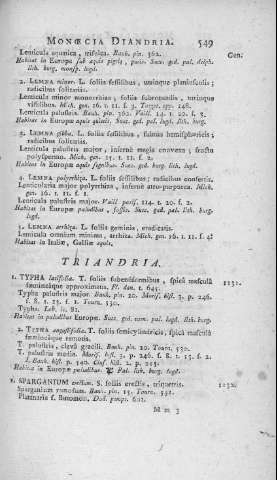 MONŒCIA DIANDRIA. 549
Lenticula aquatica, trisulca. Bauh. pin. 362.
Habitat in Europa sub aquis pigris, puris. Suec. ged. pal. delph.
lith. burg. monsp. lugd.
Gen.
2. LEMNA minor. L. foliis sessilibus, utrinque planiusculis;
radicibus solitariis.
Lenticula minor monorrhiza, foliis subrotundis, utrinque
viridibus. Mich. gen. 16. t. 11. f. 3.
Lenticula palustris. Bauh. pin. 362. Vaill.
Habitat in Europæ aquis quietis. Suec. ged. pal. lugd. lith. burg.
3. LEMNA gibba. L. foliis sessilibus, subtus hemisphæricis;
radicibus solitariis.
Lenticula palustris major, inferne magis convexa; fructu
polyspermo. Mich. gen. 15. t. 11. f. 2.
Habitat in Europæ aquis Suec. ged. burg. lith. lugd.
4. LEMNA polyrrhiza. L. foliis sessilibus; radicibus confertis.
Lenticularia major polyrrhiza, inferne atro-purpurea. Mich.
gen. 16. t. 11. f. 1.
Lenticula palustris major. Vaill. paris. 114. t. 20. f. 2.
Habitat in Europæ paludibus, fossis. Suec. ged. pal. lith. burg.
lugd.
5. LEMNA arrhiza. L. foliis geminis, eradicatis.
Lenticula omnium minima, arrhiza. Mich. gen. 16. t. 11. f. 4.
Habitat in Italiæ, Galliæ aquis.
TRIANDRIA.
1. TYPHA latifolia. T. foliis subensiformibus, spica mascula
fœmineaque approximatis. Fl. dan. t. 645.
1131.
Typha palustris major. Bauh. pin. 20. Moris. hist. 3. p. 246.
f. 8. t. 13. f. 1. Tourn. 530.
Typha. Lob. ic. 81.
Habitat in paludibus Europæ. Suec. ged. pal. lith. burg.
2. TYPHA angustifolia. T. foliis semicylindricis, spica mascula
fœmineaque remotis.
T. palustris, clava gracili. Bauh. pin. 20. Tourn. 530.
T. palustris media. Moris. hist. 3. p. 246. f. 8. t. 13. f. 2.
J. Bauh. hist. p. 540. Clus. hist. 2. p. 215.
Habitat in Europæ paludibus. ♃ Pal. lith. burg. lugd.
1. SPARGANIUM erectum. S. foliis erectis, triquetris.
1132.
Sparganium ramosum. Bauh. pin. 15. Tourn. 530.
Platanaria s. Butomon. Dod. pempt. 601.
M m 3